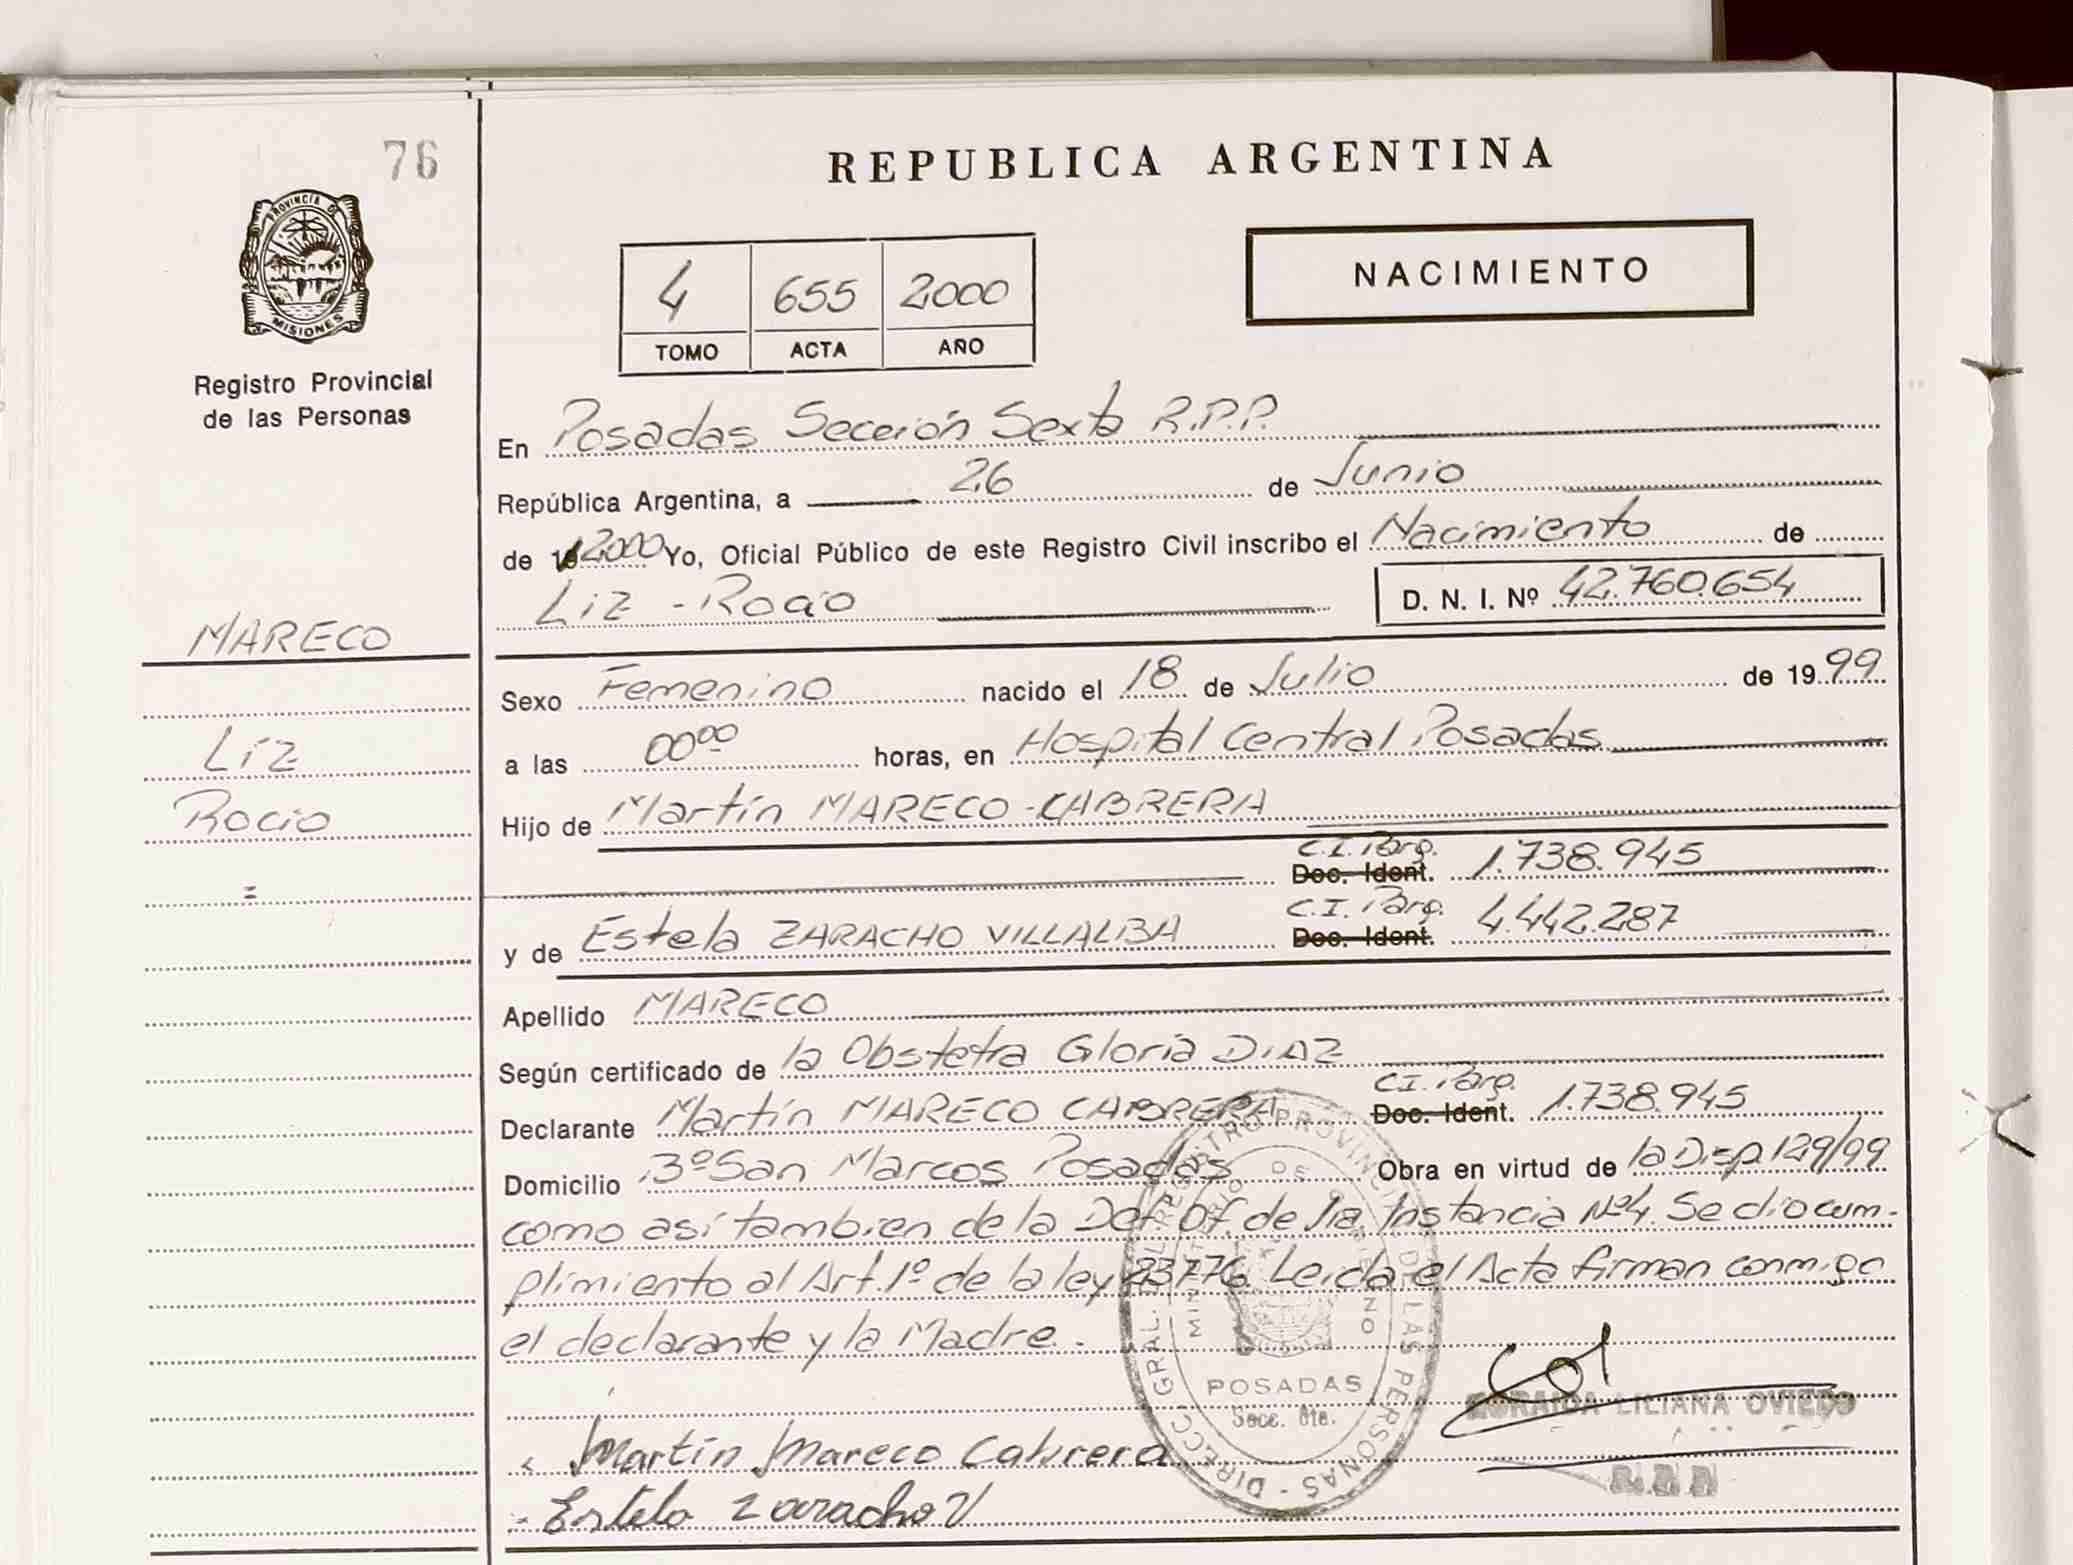 76
REPUBLICA ARGENTINA
PROVINCIA DE
MISIONES
Registro Provincial
de las Personas
4 655 2000
TOMO ACTA AÑO
NACIMIENTO
En Posadas Sección Sexta R.P.P.
República Argentina, a 26 de Junio
de 2000 Yo, Oficial Público de este Registro Civil inscribo el Nacimiento de
Liz - Rocio D. N. I. Nº 42.760.654
MARECO
Liz
Rocio
=
Sexo Femenino nacido el 18 de Julio de 1999
a las 00⁰⁰ horas, en Hospital Central Posadas
Hijo de Martín MARECO - CABRERA
C.I. Parg.
Doc. Ident. 1.738.945
C.I. Parg.
y de Estela ZARACHO VILLALBA Doc. Ident. 4.442.287
Apellido MARECO
Según certificado de la Obstetra Gloria DIAZ
C.I. Parg.
Declarante Martín MARECO CABRERA Doc. Ident. 1.738.945
Domicilio Bº San Marcos Posadas Obra en virtud de la Disp. 129/99
como así tambien de la Def. Of. de 1ra. Instancia Nº4. Se dio cum-
plimiento al Art. 1º de la ley 23776. Leida el Acta firman conmigo
el declarante y la Madre.
DIRECC. GRAL. DEL REGISTRO PROVINCIAL DE LAS PERSONAS
POSADAS
Secc. 6ta.
LILIANA OVIEDO
Martín Mareco Cabrera
Estela Zaracho V